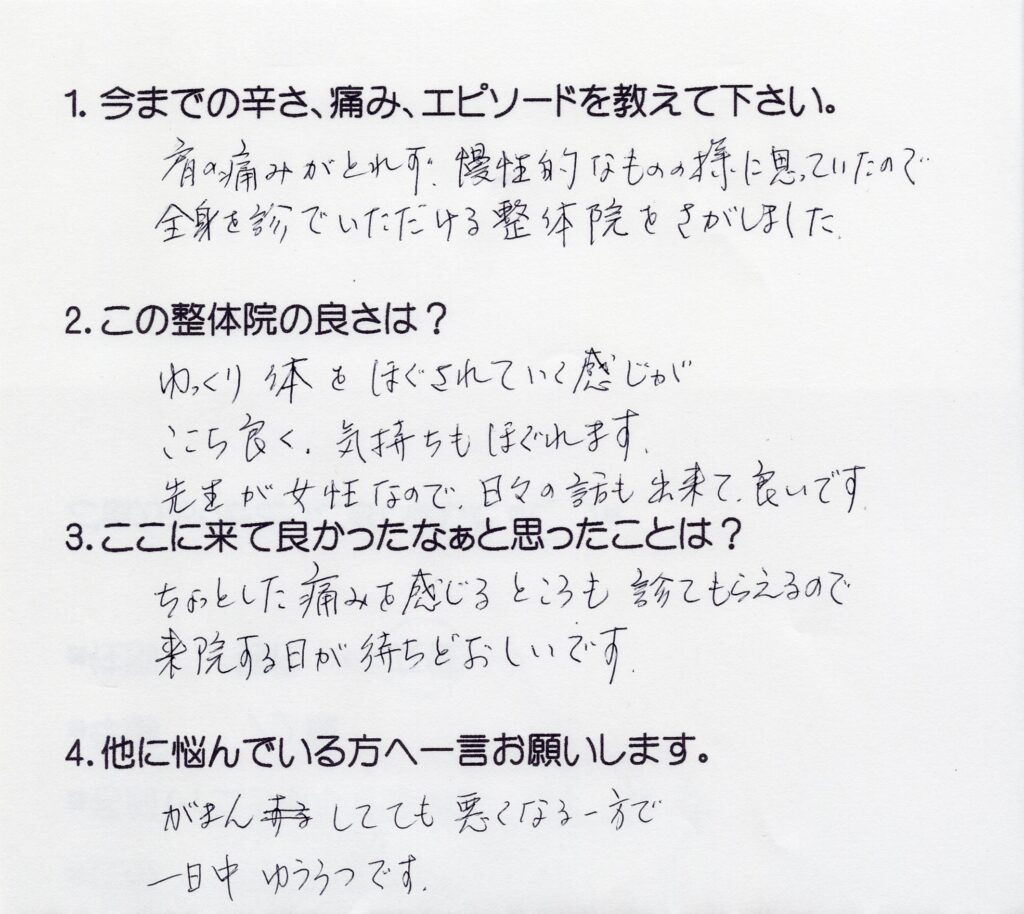 1. 今までの辛さ、痛み、エピソードを教えて下さい。
肩の痛みがとれず、慢性的なものの様に思っていたので
全身を診ていただける整体院をさがしました。
2. この整体院の良さは？
ゆっくり体をほぐされていく感じが
ここち良く、気持ちもほぐれます。
先生が女性なので、日々の話も出来て、良いです
3. ここに来て良かったなぁと思ったことは？
ちょっとした痛みを感じるところも診てもらえるので
来院する日が待ちどおしいです。
4. 他に悩んでいる方へ一言お願いします。
がまんしてても悪くなる一方で
一日中ゆううつです。